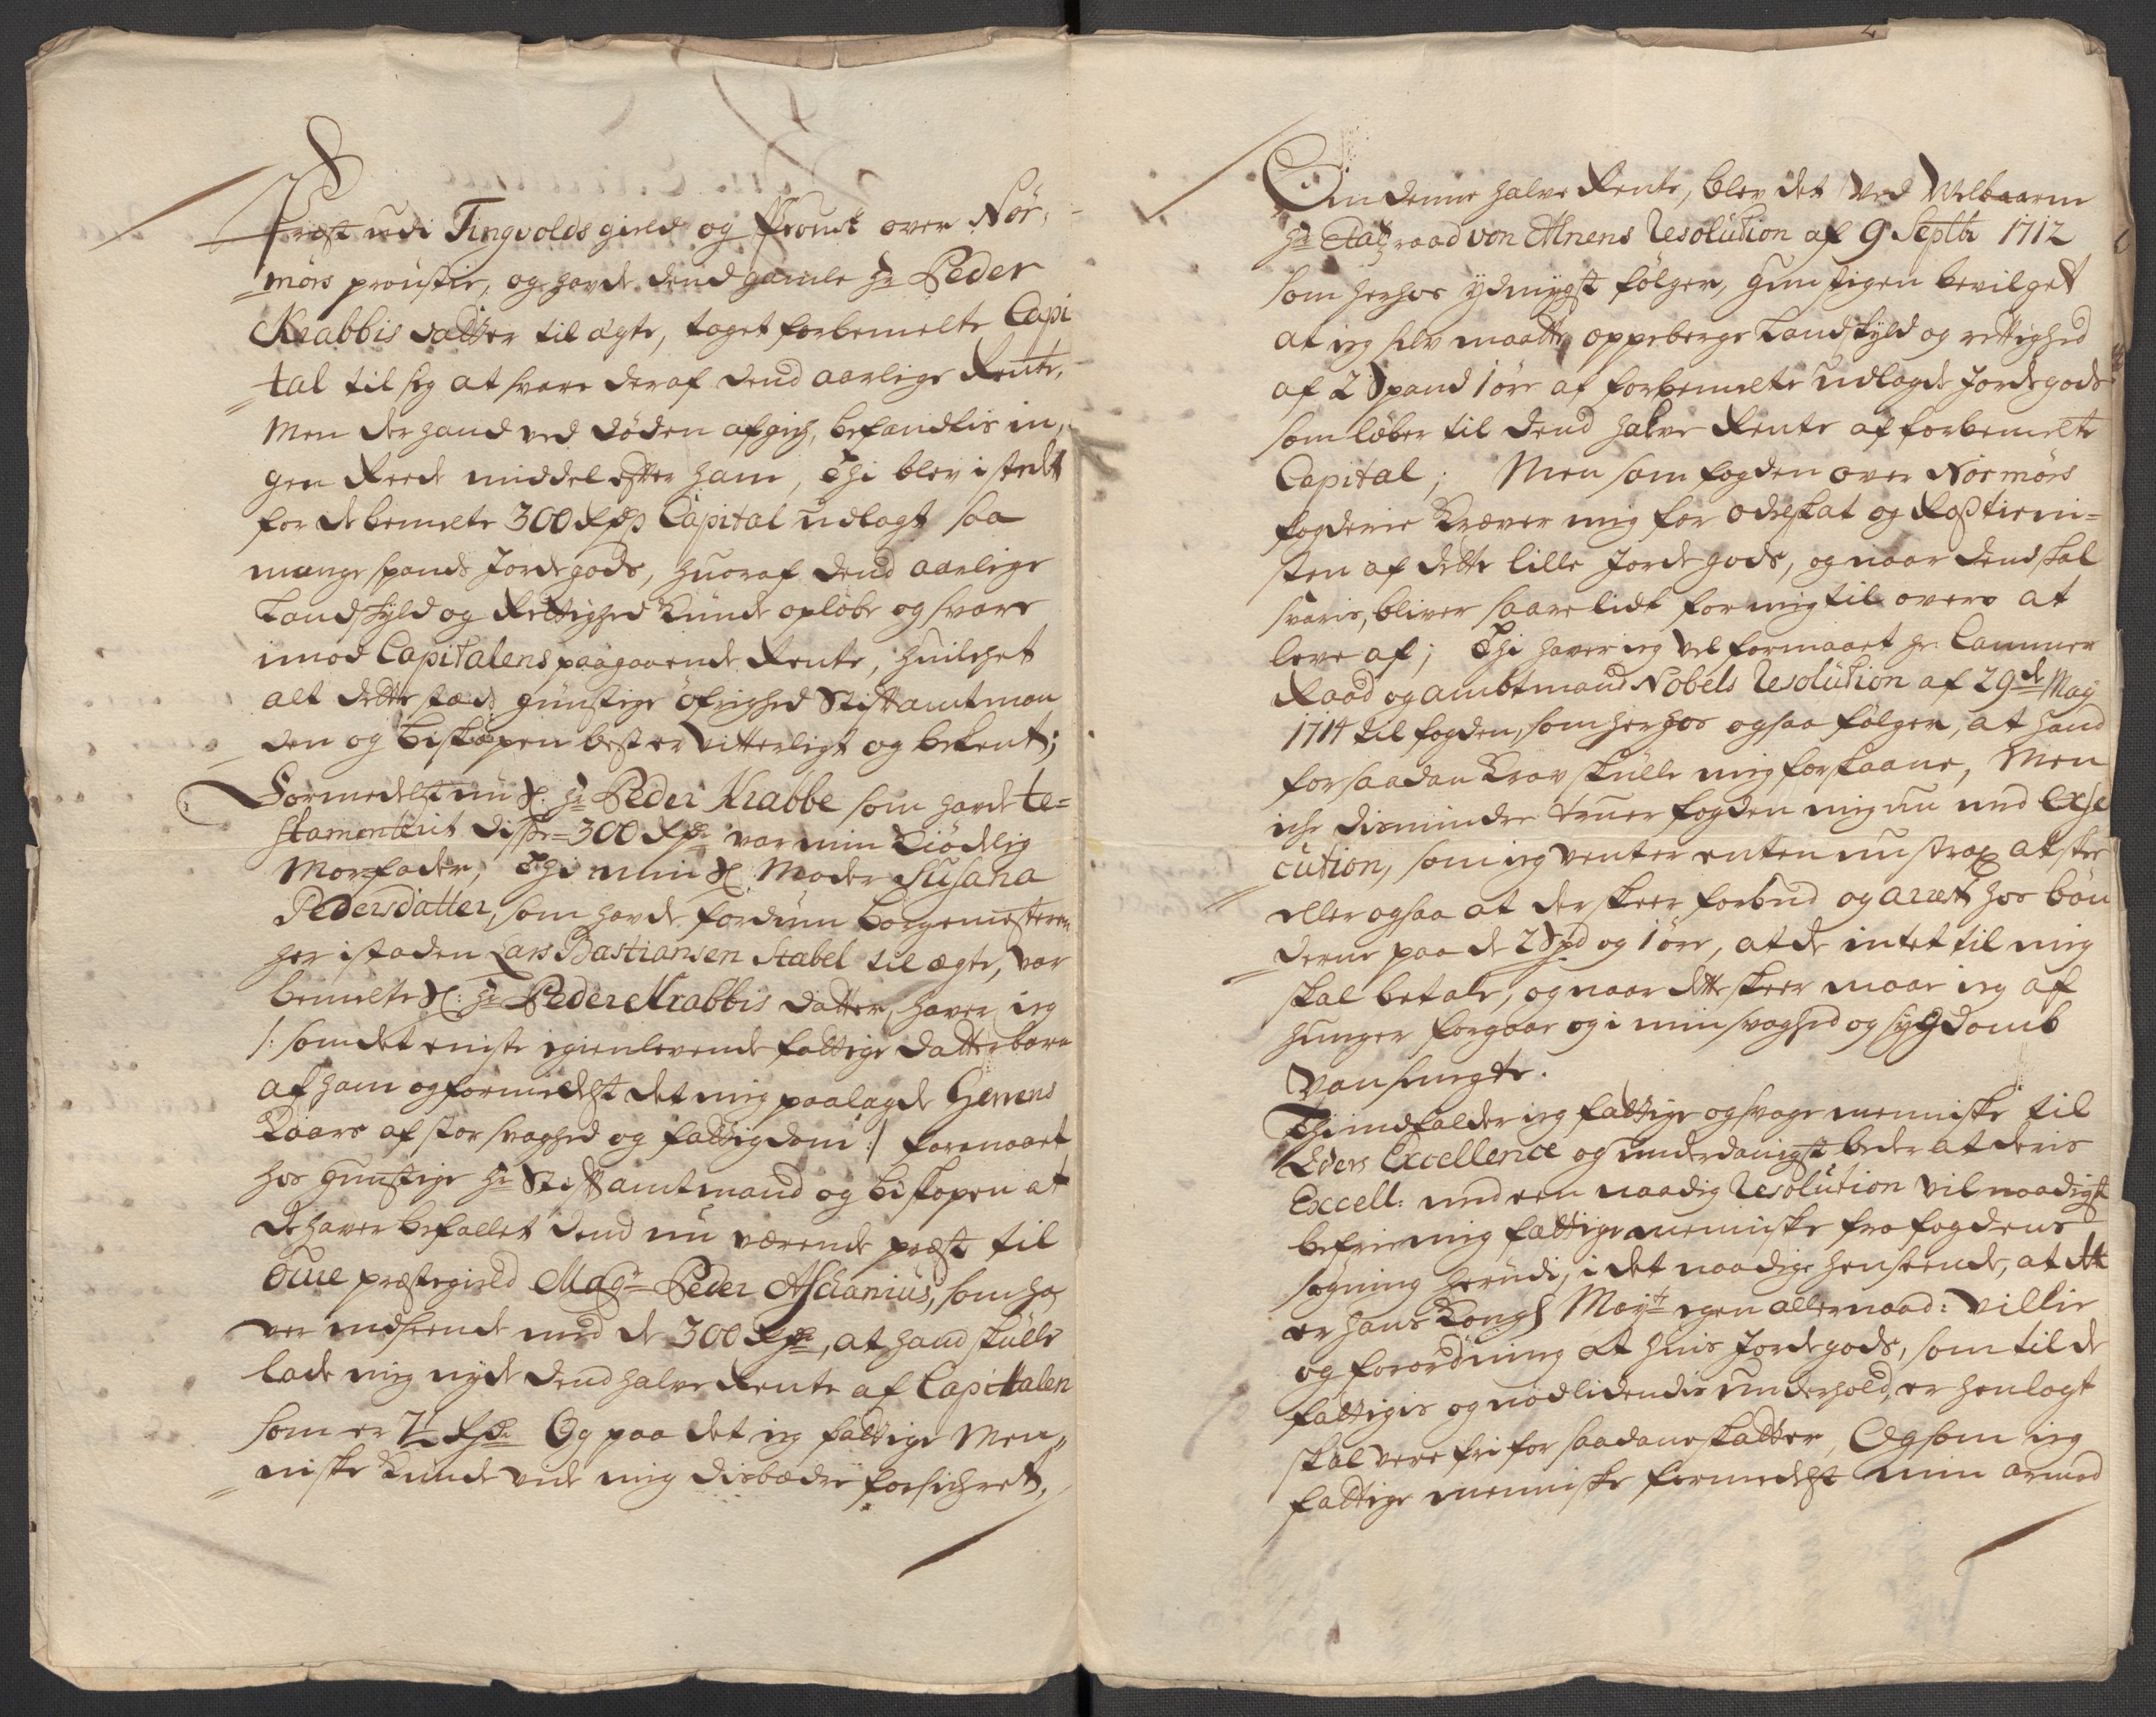 Præst udi Tingvolds gield og Proust over Nör,,
mörs proustie, og hafde dend gamle Hr Peder
Krabbis datter til ægte, taget forbemelte Capi
tal til sig at svare deraf dend aarlige Rente,
Men der hand ved döden afgich, befandtis in,,
gen Reede middel efter ham, Thi blev i stedet
for de bemelte 300 Rdr Capital udlagt saa
mange spands Jordegods, huoraf dend aarlige
Landskyld og Rettighed kunde oplöbe og svare
imod Capitalens paagaaende Rente, huilchet
alt dette steds gunstige öfrighed Stiftamtman
den og Biskopen best er vitterligt og bekent;
Formedelst nu S. Hr Peder Krabbe som hafde te=
stamenterit disse 300 Rdr var min Kiödelig
Morfader, Thi min S: Moder Susana
Pedersdatter, som hafde fordum Borgemesteren
her i staden Lars Bastiansen Stabel til ægte, var
bemelte S: Hr Peder Krabbis datter, haver ieg
/: som det eniste igienlevende fattige datterbarn
af ham og formedelst det mig paalagde Herrens
Kaars af stor svaghed og fattigdom :/ formaaet
hos gunstige Hr Stiftamtmand og Biskopen at
de haver befallet dend nu værende præst til
Öuue præstegield Magr Peder Aschanius, som ha
ver indseende med de 300 Rdr, at hand skulle
lade mig nyde dend halve Rente af Capitalen
som er 7½ Rdr Og paa det ieg fattige Men,,
niske kunde vide mig disbædre forsichret,
Om denne halve Rente, blev det ved Velbaarne
Hr Etatzraad von Ahnens Resolution af 9 Septbr 1712
som herhos ydmygst fölger, gunstigen bevilget
at ieg selv maatte oppeberge Landskyld og rettighed
af 2 Spand 1 öre af forbemelte udlagde Jordegods
som löber til dend halve Rente af forbemelte
Capital; Men som fogden over Nörmörs
fogderie Kræver mig for odelskat og Rostieni=
sten af dette lille Jordegods, og naar dend skal
svaris, bliver saare lidt for mig til overs at
leve af; Thi haver ieg vel formaaet Hr: Cammer
Raad og ambtmand Nobels Resolution af 29de May
1714 til fogden, som herhos ogsaa fölger, at hand
for saadan Krav skulle mig forskaane, Men
iche disminder truer fogden mig nu med Exse
cution, som ieg venter enten nu strax at skee
eller ogsaa at der skeer forbud og arrest hos bön
derne paa de 2 Spd og 1 öre, at de intet til mig
skal betale, og naar dette skeer maae ieg af
hunger forgaae og i min svaghed og sygdomb
vansmegte.
Thi indfalder ieg fattige og svage menniske til
Eders Excellence og underdanigst beder at deris
Excell: med een naadig Resolution vil naadigst
befrie mig fattige menniske fra fogdens
sögning herudi, i det naadige henseende, at det
er hans Kongl Mayts egen allernaad: villie
og forordning at huis Jordegods, som til de
fattigis og nödlidendis underhold, er henlagt
skal vere fri for saadane skatter, Og som ieg
fattige menniske formedelst min armod